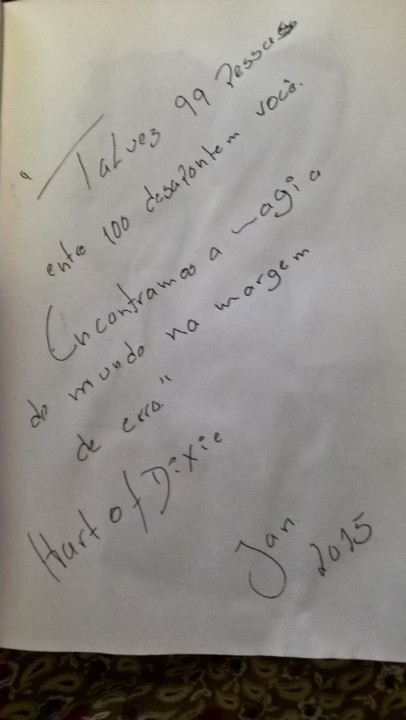 "Talvez 99 Pessoas
entre 100 desapontem você.
Encontramos a magia
do mundo na margem
de erro."
Hart of Dixie
Jan 2015